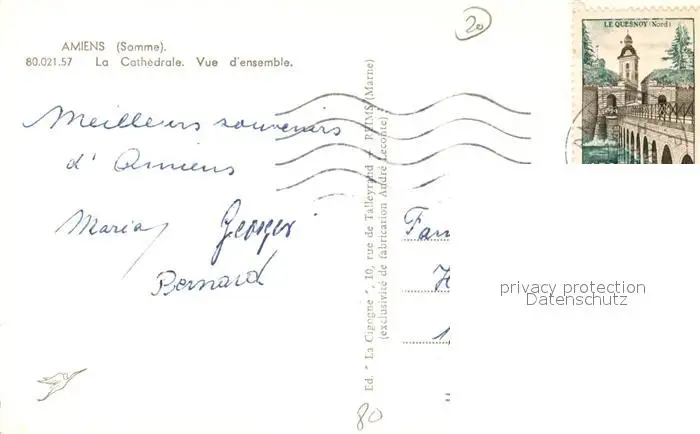 20
LE QUESNOY (Nord)
AMIENS (Somme).
80.021.57 La Cathédrale. Vue d'ensemble.
Meilleurs souvenirs
d'Amiens
Maria Georges
Bernard
Ed. "La Cigogne", 10, rue de Talleyrand - REIMS (Marne)
(exclusivité de fabrication André Leconte)
Fam
H
1
privacy protection
Datenschutz
80